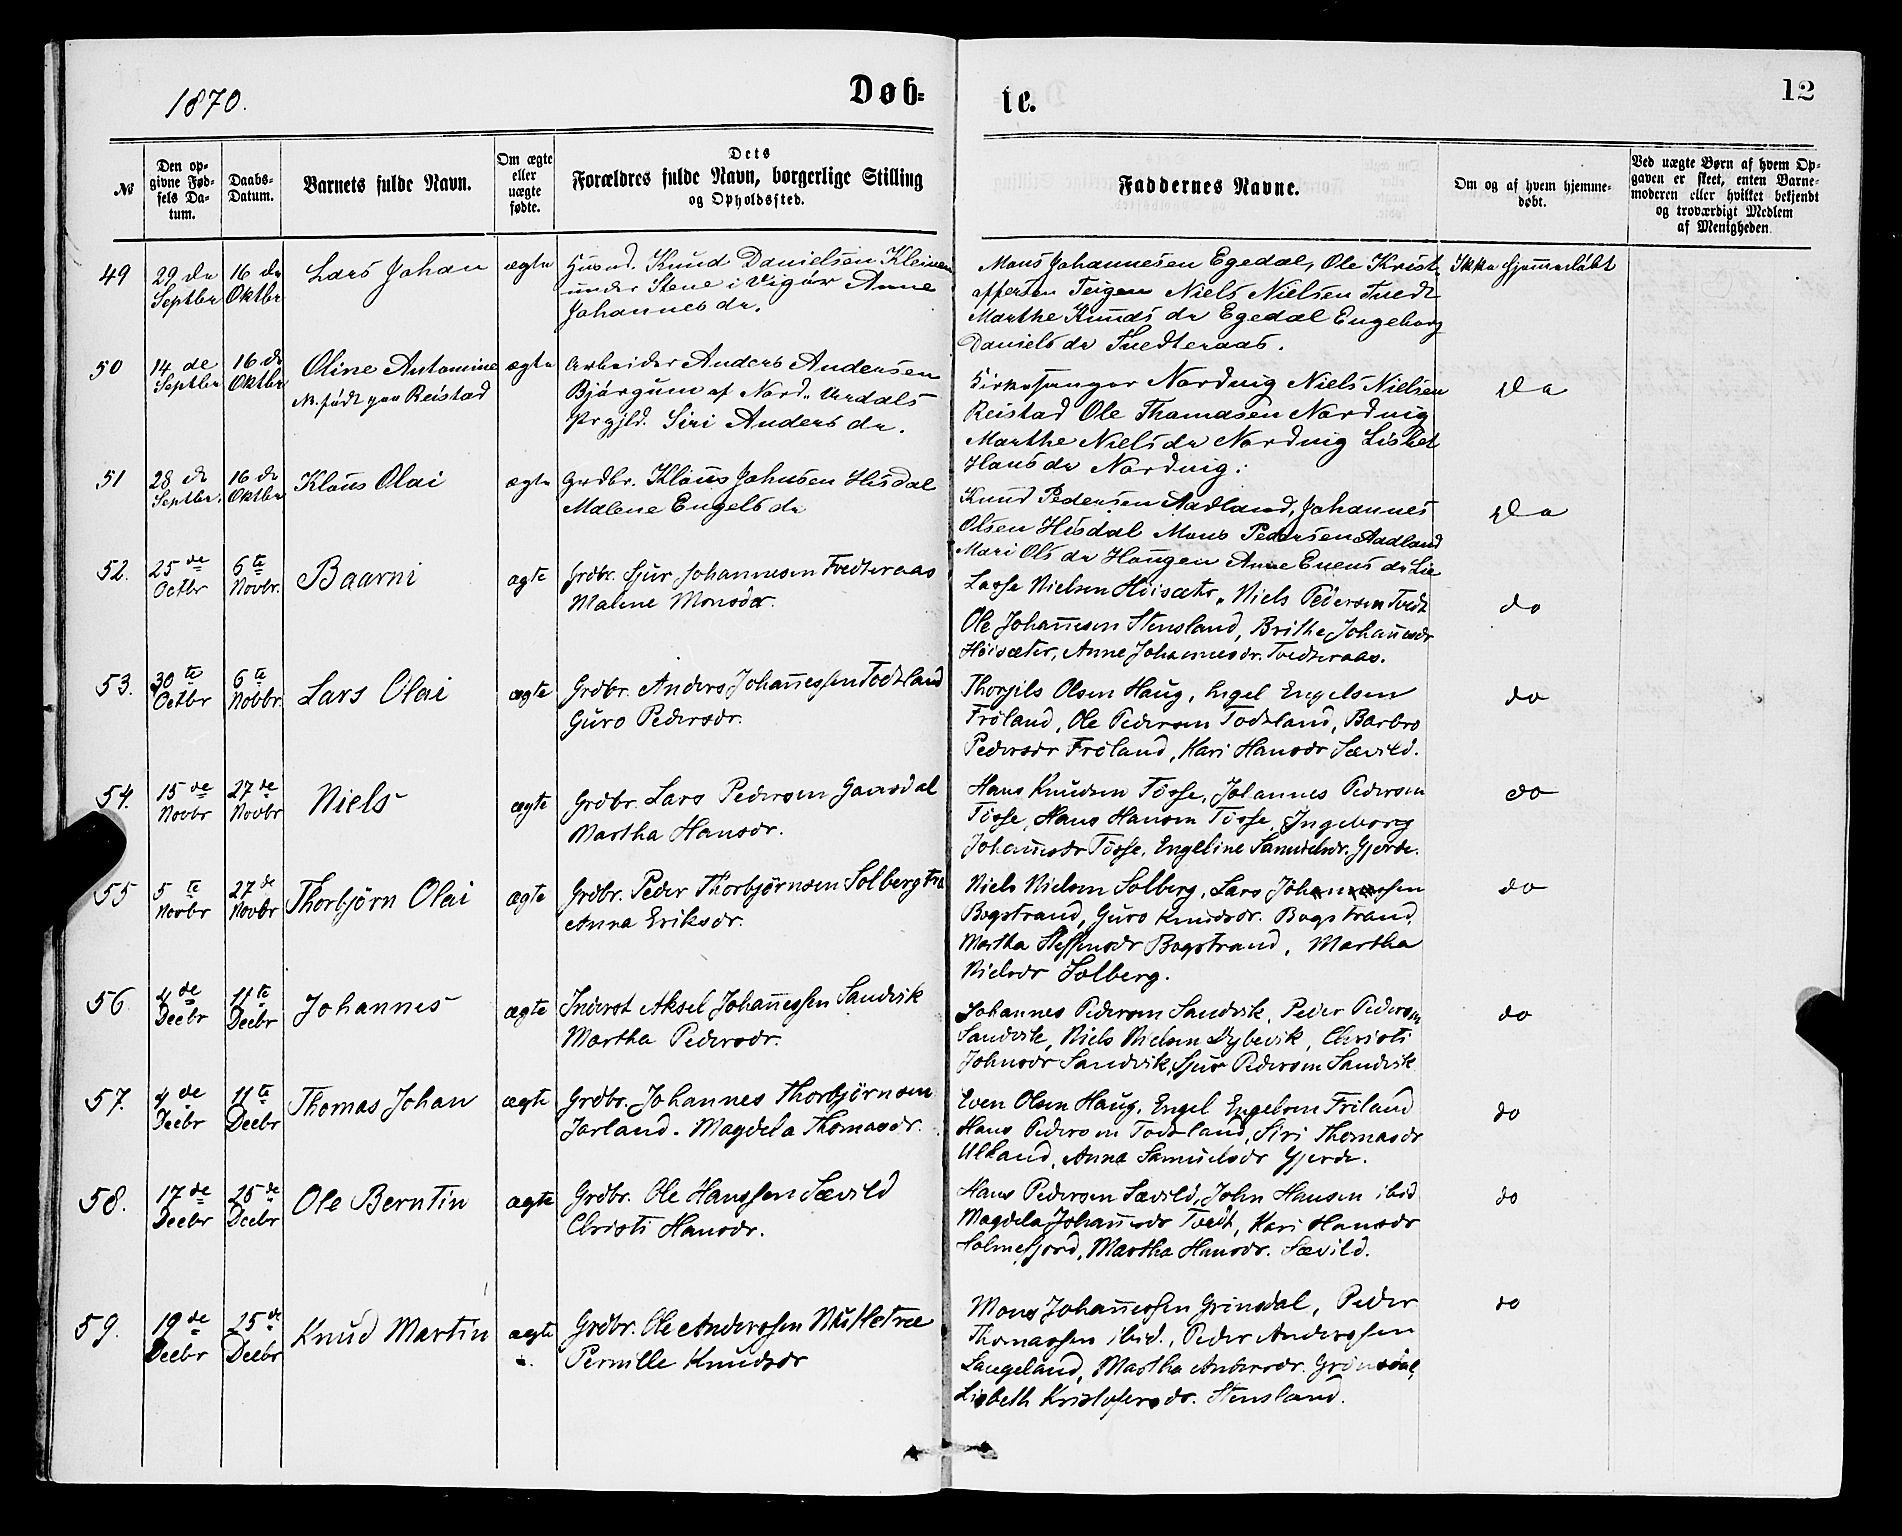 1870.
Døb-
te.
12
№
Den op-
givne Fød-
sels Da-
tum.
Daabs-
Datum.
Barnets fulde Navn.
Om ægte
eller
uægte
fødte.
Dets
Forældres fulde Navn, borgerlige Stilling
og Opholdssted.
Faddernes Navne.
Om og af hvem hjemme-
døbt.
Ved uægte Børn af hvem Op-
gaven er skeet, enten Barne-
moderen eller hvilket bekjendt
og troværdigt Medlem
af Menigheden
49
29 de
Septbr
16 de
Oktbr
Lars Johan
ægte
Husmd. Knud Danielsen Kleiven
under Stene i Vigør Anne
Johannesdr.
Mons Johannesen Egedal, Ole Krist-
offersen Teigen Niels Nielsen Tvedt
Marthe Knudsdr Egedal Engeborg
Danielsdr Tvedteraas.
Ikke hjemmedøbt
50
14 de
Septbr
16 de
Oktbr
Oline Antomine
N. født paa Reistad
ægte
Arbeider Anders Andersen
Bjørgum af Nord. Urdals
Prgjld. Siri Andersdr.
Kirkesanger Nordvig Niels Nielsen
Reistad Ole Thomasen Nordvig
Marthe Nielsdr Nordvig Lisbet
Hansdr Nordvig.
Do
51
28 de
Septbr.
16 de
Oktbr
Klaus Olai
ægte
Grdbr. Klaus Johnsen Hisdal
Malene Engelsdr
Knud Pedersen Aadland, Johannes
Olsen Hisdal Mons Pedersen Aadland
Mari Olsdr Haugen Anne Evensdr Lie
Do
52.
25 de
Octbr
6 te
Novbr.
Baarni
ægte
Grdbr. Sjur Johannesen Tvedteraas
Malene Monsdr.
Lasse Nielsen Høisæter, Niels Pedersen Tvedt
Ole Johannesen Stensland, Brithe Johannesdr
Høisæter, Anne Johannesdr. Tvedteraas.
do
53.
30 te
Octbr
6 te
Novbr.
Lars Olai
ægte
Grdbr. Anders Johannessen Todtland
Guro Pedersdr.
Thorgils Olsen Haug, Engel Engelsen
Frøland, Ole Pedersen Todtland, Barbro
Pedersdr Frøland, Kari Hansdr Sævild.
do
54.
15 de
Novbr
27 de
Novbr
Niels
ægte
Grdbr. Lars Pedersen Gaasdal
Martha Hansdr.
Hans Knudsen Tøsse, Johannes Pedersen
Tøsse, Hans Hansen Tøsse, Ingeborg
Johannesdr Tøsse, Engeline Samuelsdr. Gjerde.
do
55
5 te
Novbr
27 de
Novbr
Thorbjørn Olai
ægte
Grdbr. Peder Thorbjørnsen Solbergtræ
Anna Eriksdr.
Niels Nielsen Solberg, Lars Johannessen
Bogstrand, Guro Knudsdr. Bogstrand,
Martha Steffensdr Bogstrand, Martha
Nielsdr Solberg.
do
56
4 de
Decbr
11 te
Decbr
Johannes
ægte
Inderst Aksel Johannessen Sandvik
Martha Pedersdr.
Johannes Pedersen Sandvik, Peder Pedersen
Sandvik, Niels Nielsen Dybevik, Christi
Johnsdr Sandvik, Sjur Pedersen Sandvik
do
57.
4 de
Decbr
11 te
Decbr
Thomas Johan
ægte
Grdbr. Johannes Thorbjørnsen
Jarland. Magdela Thomasdr.
Even Olsen Haug, Engel Engelsen Friland
Hans Pedersen Todtland, Siri Thomasdr
Ulland, Anna Samuelsdr Gjerde.
do
58.
17 de
Decbr
25 de
Decbr
Ole Berntin
ægte
Grdbr. Ole Hanssen Sævild
Christi Hansdr.
Hans Pedersen Sævild, John Hansen ibid
Magdela Johannesdr Tvedt, Kari Hansdr
Holmefjord, Martha Hansdr. Sævild.
do
59.
19 de
Decbr
25 de
Decbr
Knud Martin
ægte
Grdbr. Ole Anderssen Musletræe
Pernille Knudsdr
Mons Johannessen Grinsdal, Peder
Thomassen ibid., Peder Anderssen
Langeland, Martha Andersdr. Grinsdal,
Lisbeth Kristofersdr. Stensland.
do